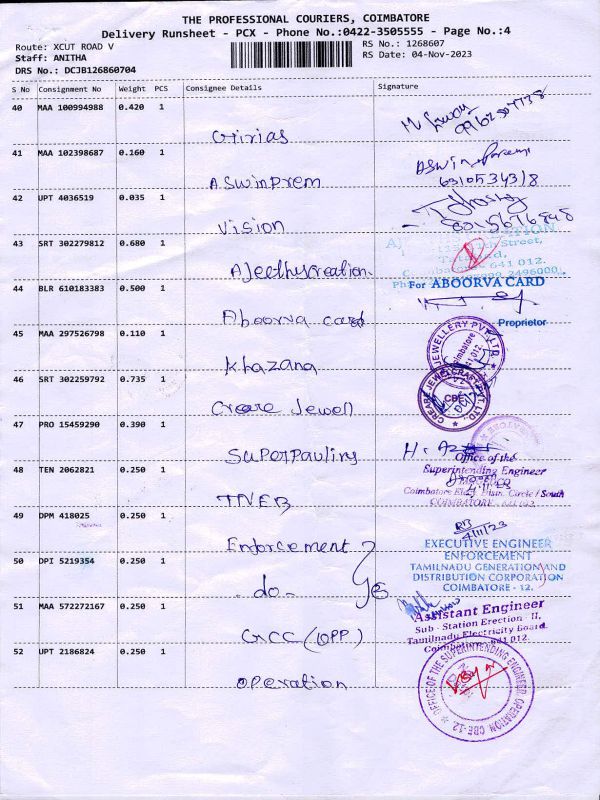 THE PROFESSIONAL COURIERS, COIMBATORE
Delivery Runsheet - PCX - Phone No.:0422-3505555 - Page No.:4
Route: XCUT ROAD V
RS No.: 1268607
Staff: ANITHA
RS Date: 04-Nov-2023
DRS No.: DCJB126860704
S No Consignment No Weight PCS Consignee Details Signature
40 MAA 100994988 0.420 1
Girias
41 MAA 102398687 0.160 1
ASwinprem
63105 34318
42 UPT 4036519 0.035 1
Vision
43 SRT 302279812 0.680 1
Street,
641 012.
2496000
Ajeethscreation.
44 BLR 610183383 0.500 1
For ABOORVA CARD
Aboorva card
Proprietor
45 MAA 297526798 0.110 1
JEWELLERY PVT. LTD.
Coimbatore
Khazana
46 SRT 302259792 0.735 1
CREARE JEWEL CRAFT PVT. LTD.
CBE
Creare Jewell
47 PRO 15459290 0.390 1
Office of the
48 TEN 2062821 0.250 1
Superintending Engineer
Coimbatore Elec. Distn. Circle / South
COIMBATORE
TNEB
49 DPM 418025 0.250 1
4/11/23
Enforcement
EXECUTIVE ENGINEER
ENFORCEMENT
50 DPI 5219354 0.250 1
TAMILNADU GENERATION AND
DISTRIBUTION CORPORATION
COIMBATORE - 12.
-do-
51 MAA 572272167 0.250 1
Assistant Engineer
Sub - Station Erection - II,
Tamilnadu Electricity Board.
Coimbatore - 641 012.
GCC (OPP)
52 UPT 2186824 0.250 1
OFFICE OF THE SUPERINTENDING ENGINEER OPERATION CBE-12.
Operation